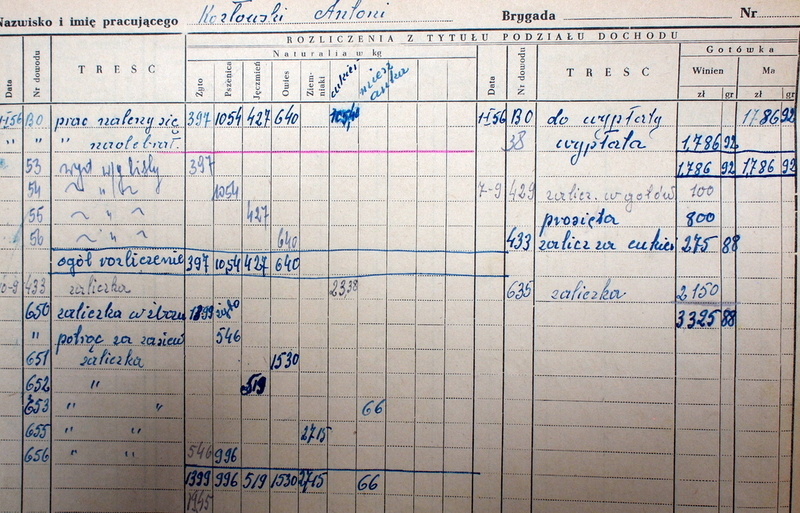 Nazwisko i imię pracującego Kozłowski Antoni Brygada Nr
ROZLICZENIA Z TYTUŁU PODZIAŁU DOCHODU
Naturalia w kg Gotówka
Data Nr dowodu TREŚĆ Żyto Pszenica Jęczmień Owies Ziemniaki cukier mieszanka Data Nr dowodu TREŚĆ Winien Ma
zł gr zł gr
1-I 56 BO prac należy się 397 1054 427 640 1-I 56 BO do wypłaty 1.786 92
" " nadebrał 38 wypłata 1.786 92
53 wyd w/g listy 397 1.786 92 1.786 92
54 ~ " ~ 1054 7-9 429 zalicz. w gotów 100
55 ~ " ~ 427 prosięta 800
56 ~ " ~ 640 433 zalicz za cukier 275 88
ogół rozliczenie 397 1054 427 640
433 zaliczka 2338 635 zaliczka 2150
650 zaliczka w zbożu 1399 3325 88
" potrąc za zasiew 546
651 zaliczka 1530
652 " 519
653 " " 66
655 " " 2715
656 " " 546 996
1399 996 519 1530 2715 66
1945